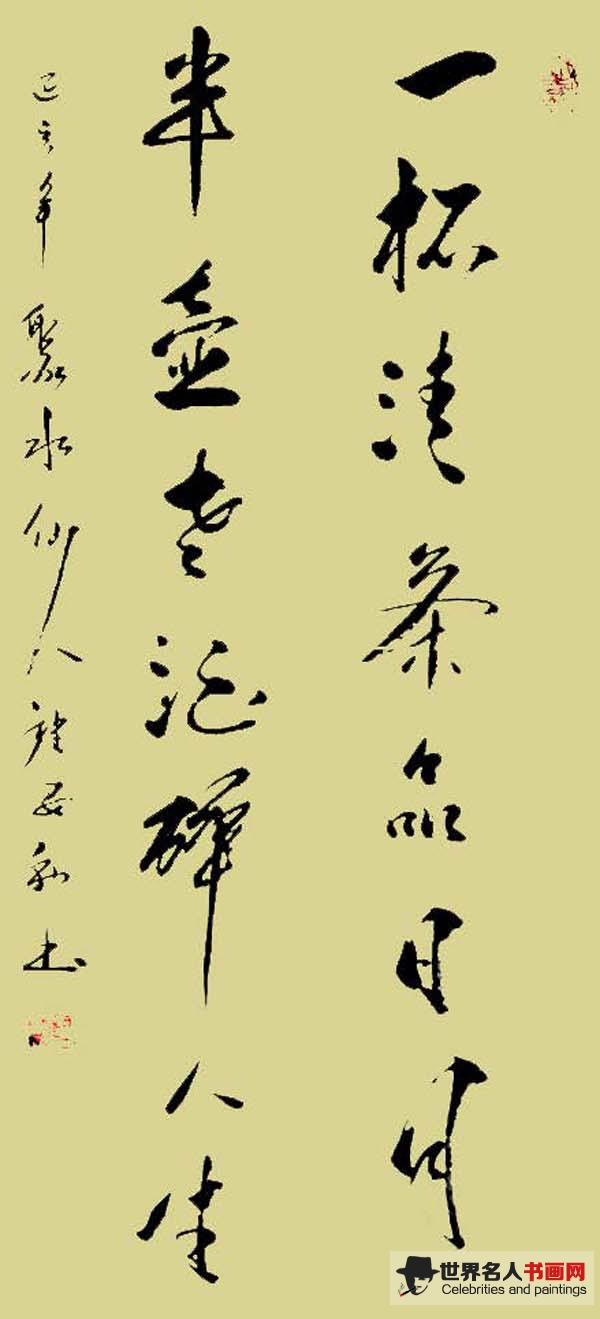 一杯清茶品日月
半壶老酒醉人生
己亥年 水仙人 书
世界名人书画网
Celebrities and paintings